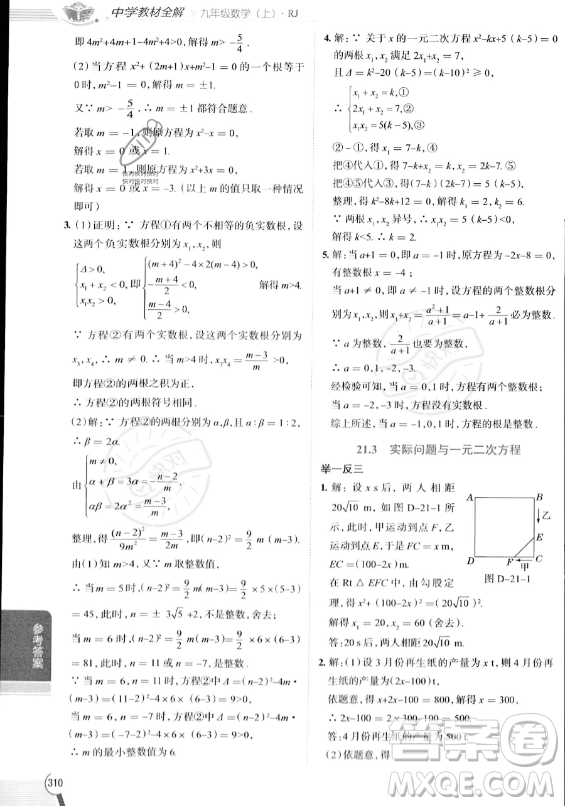 中学教材全解 九年级数学（上）·RJ
即 4m²+4m+1-4m²+4>0, 解得 m>-5/4.
(2) 当方程 x²+(2m+1)x+m²-1=0 的一个根等于
0 时, m²-1=0, 解得 m=±1.
又∵ m>-5/4, ∴ m=±1 都符合题意.
若取 m=-1, 则原方程为 x²-x=0,
解得 x=0 或 x=1.
解得 x=0 或 x=-3. (以上 m 值只写一种情况
即可)
3. (1) 证明: ∵ 方程①有两个不相等的负实数根, 设
这两个负实数根分别为 x₁, x₂, 则
{Δ>0, x₁+x₂<0, x₁x₂>0, 即 {(m+4)²-4×2(m-4)>0, -(m+4)/2<0, (m-4)/2>0, 解得 m>4.
∵ 方程②有两个实数根, 设这两个实数根分别为
x₃, x₄, ∴ m≠0. ∴ 当 m>4 时, x₃x₄=(m-3)/m>0,
即方程②的两根之积为正,
∴ 方程②的两根符号相同.
(2) 解: ∵ 方程②的两根分别为 α,β, 且 α:β=1:2,
∴ β=2α.
由 {α+β=3α=-(n-2)/m, αβ=2α²=(m-3)/m.
整理, 得 (n-2)²/9m²=(m-3)/2m, 即 (n-2)²=9/2 m(m-3).
由 (1) 知 m>4, 又 m 取整数值,
∴ 当 m=5 时, (n-2)²=9/2 m(m-3)=9/2×5×(5-3)
=45, 此时, n=±3√5+2, 不是整数, 舍去;
当 m=6 时, (n-2)²=9/2 m(m-3)=9/2×6×(6-3)
=81, 此时, n=11 或 n=-7, 都是整数,
∴ m 的最小整数值为 6.
4. 解: ∵ 关于 x 的一元二次方程 x²-kx+5(k-5)=0
的两根 x₁, x₂ 满足 2x₁+x₂=7,
且 Δ=k²-20(k-5)=(k-10)²≥0,
∴ {x₁+x₂=k,① 2x₁+x₂=7,② x₁x₂=5(k-5),③
②-①, 得 x₁=7-k.④
把④代入①, 得 x₂=2k-7.⑤
把④⑤代入③, 得 (7-k)(2k-7)=5(k-5),
整理, 得 k²-8k+12=0, 解得 k=2 或 k=6.
∵ 两根 x₁, x₂ 异号, ∴ x₁x₂<0, 即 5(k-5)<0,
解得 k<5. ∴ k=2.
5. 解: 当 a+1=0, 即 a=-1 时, 原方程为 -2x-8=0,
有整数根 x=-4;
当 a+1≠0, 即 a≠-1 时, 设方程的两个整数根分
别为 x₁, x₂, 则 x₁+x₂=(a²+1)/(a+1)=a-1+2/(a+1) 必为整数.
∵ a 为整数, ∴ 2/(a+1) 也要为整数.
∴ 整数 a=0,1,-2,-3.
经检验可知, 当 a=0,1 时, 方程有两个整数根;
当 a=-2,-3 时, 方程没有整数根.
综上所述, 当 a=-1,0,1 时, 方程的根是整数.
21.3 实际问题与一元二次方程
举一反三
1. 解: 设 x s 后, 两人相距
20√10 m, 如图 D-21-1 所
示, 此时, 甲运动到点 F, 乙
运动到点 E, 可知 FC=2x m,
EC=(100-2x) m.
在 Rt△EFC 中, 由勾股定
理, 得 (2x)²+(100-2x)²=(20√10)²,
解得 x₁=20, x₂=60 (舍去).
答: 20 s 后, 两人相距 20√10 m.
A B
乙
E
D F C
甲
图 D-21-1
1. 解: (1) 设 3 月份再生纸的产量为 x t, 则 4 月份再
生纸的产量为 (2x-100) t,
依题意, 得 x+2x-100=800, 解得 x=300,
∴ 2x-100=2×300-100=500.
答: 4 月份再生纸的产量为 500 t.
(2) 依题意, 得
参考答案
310